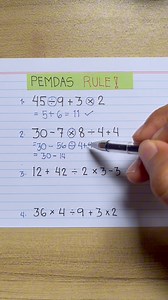 PEMDAS RULE!
1. 45 ÷ 9 + 3 × 2
= 5 + 6 = 11 ✓
2. 30 - 7 × 8 ÷ 4 + 4
= 30 - 56 ÷ 4 + 4
= 30 - 14
3. 12 + 42 ÷ 2 × 3 - 3
4. 36 × 4 ÷ 9 + 3 × 2